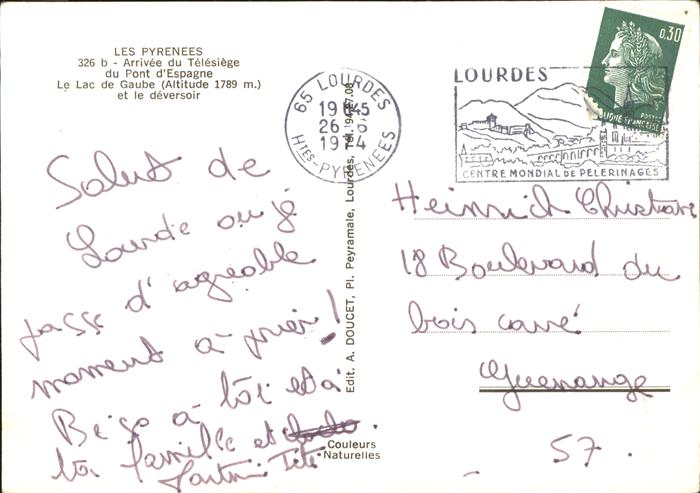 LES PYRENEES
326 b - Arrivée du Télésiège
du Pont d'Espagne
Le Lac de Gaube (Altitude 1789 m.)
et le déversoir
65 LOURDES
19H45
26-6
1974
Htes-PYRENEES
LOURDES
CENTRE MONDIAL DE PELERINAGES
0,30
POSTES
Salut de
Lourde ou j'é
passe d'agréable
moment à prier!
Biso à toi et à
ta famille et
Edit. A. DOUCET, Pl. Peyramale, Lourdes, Tél. 94.27.08
Couleurs
Naturelles
Heinrich Christiane
18 Boulevard du
bois carré
Guenange
57.